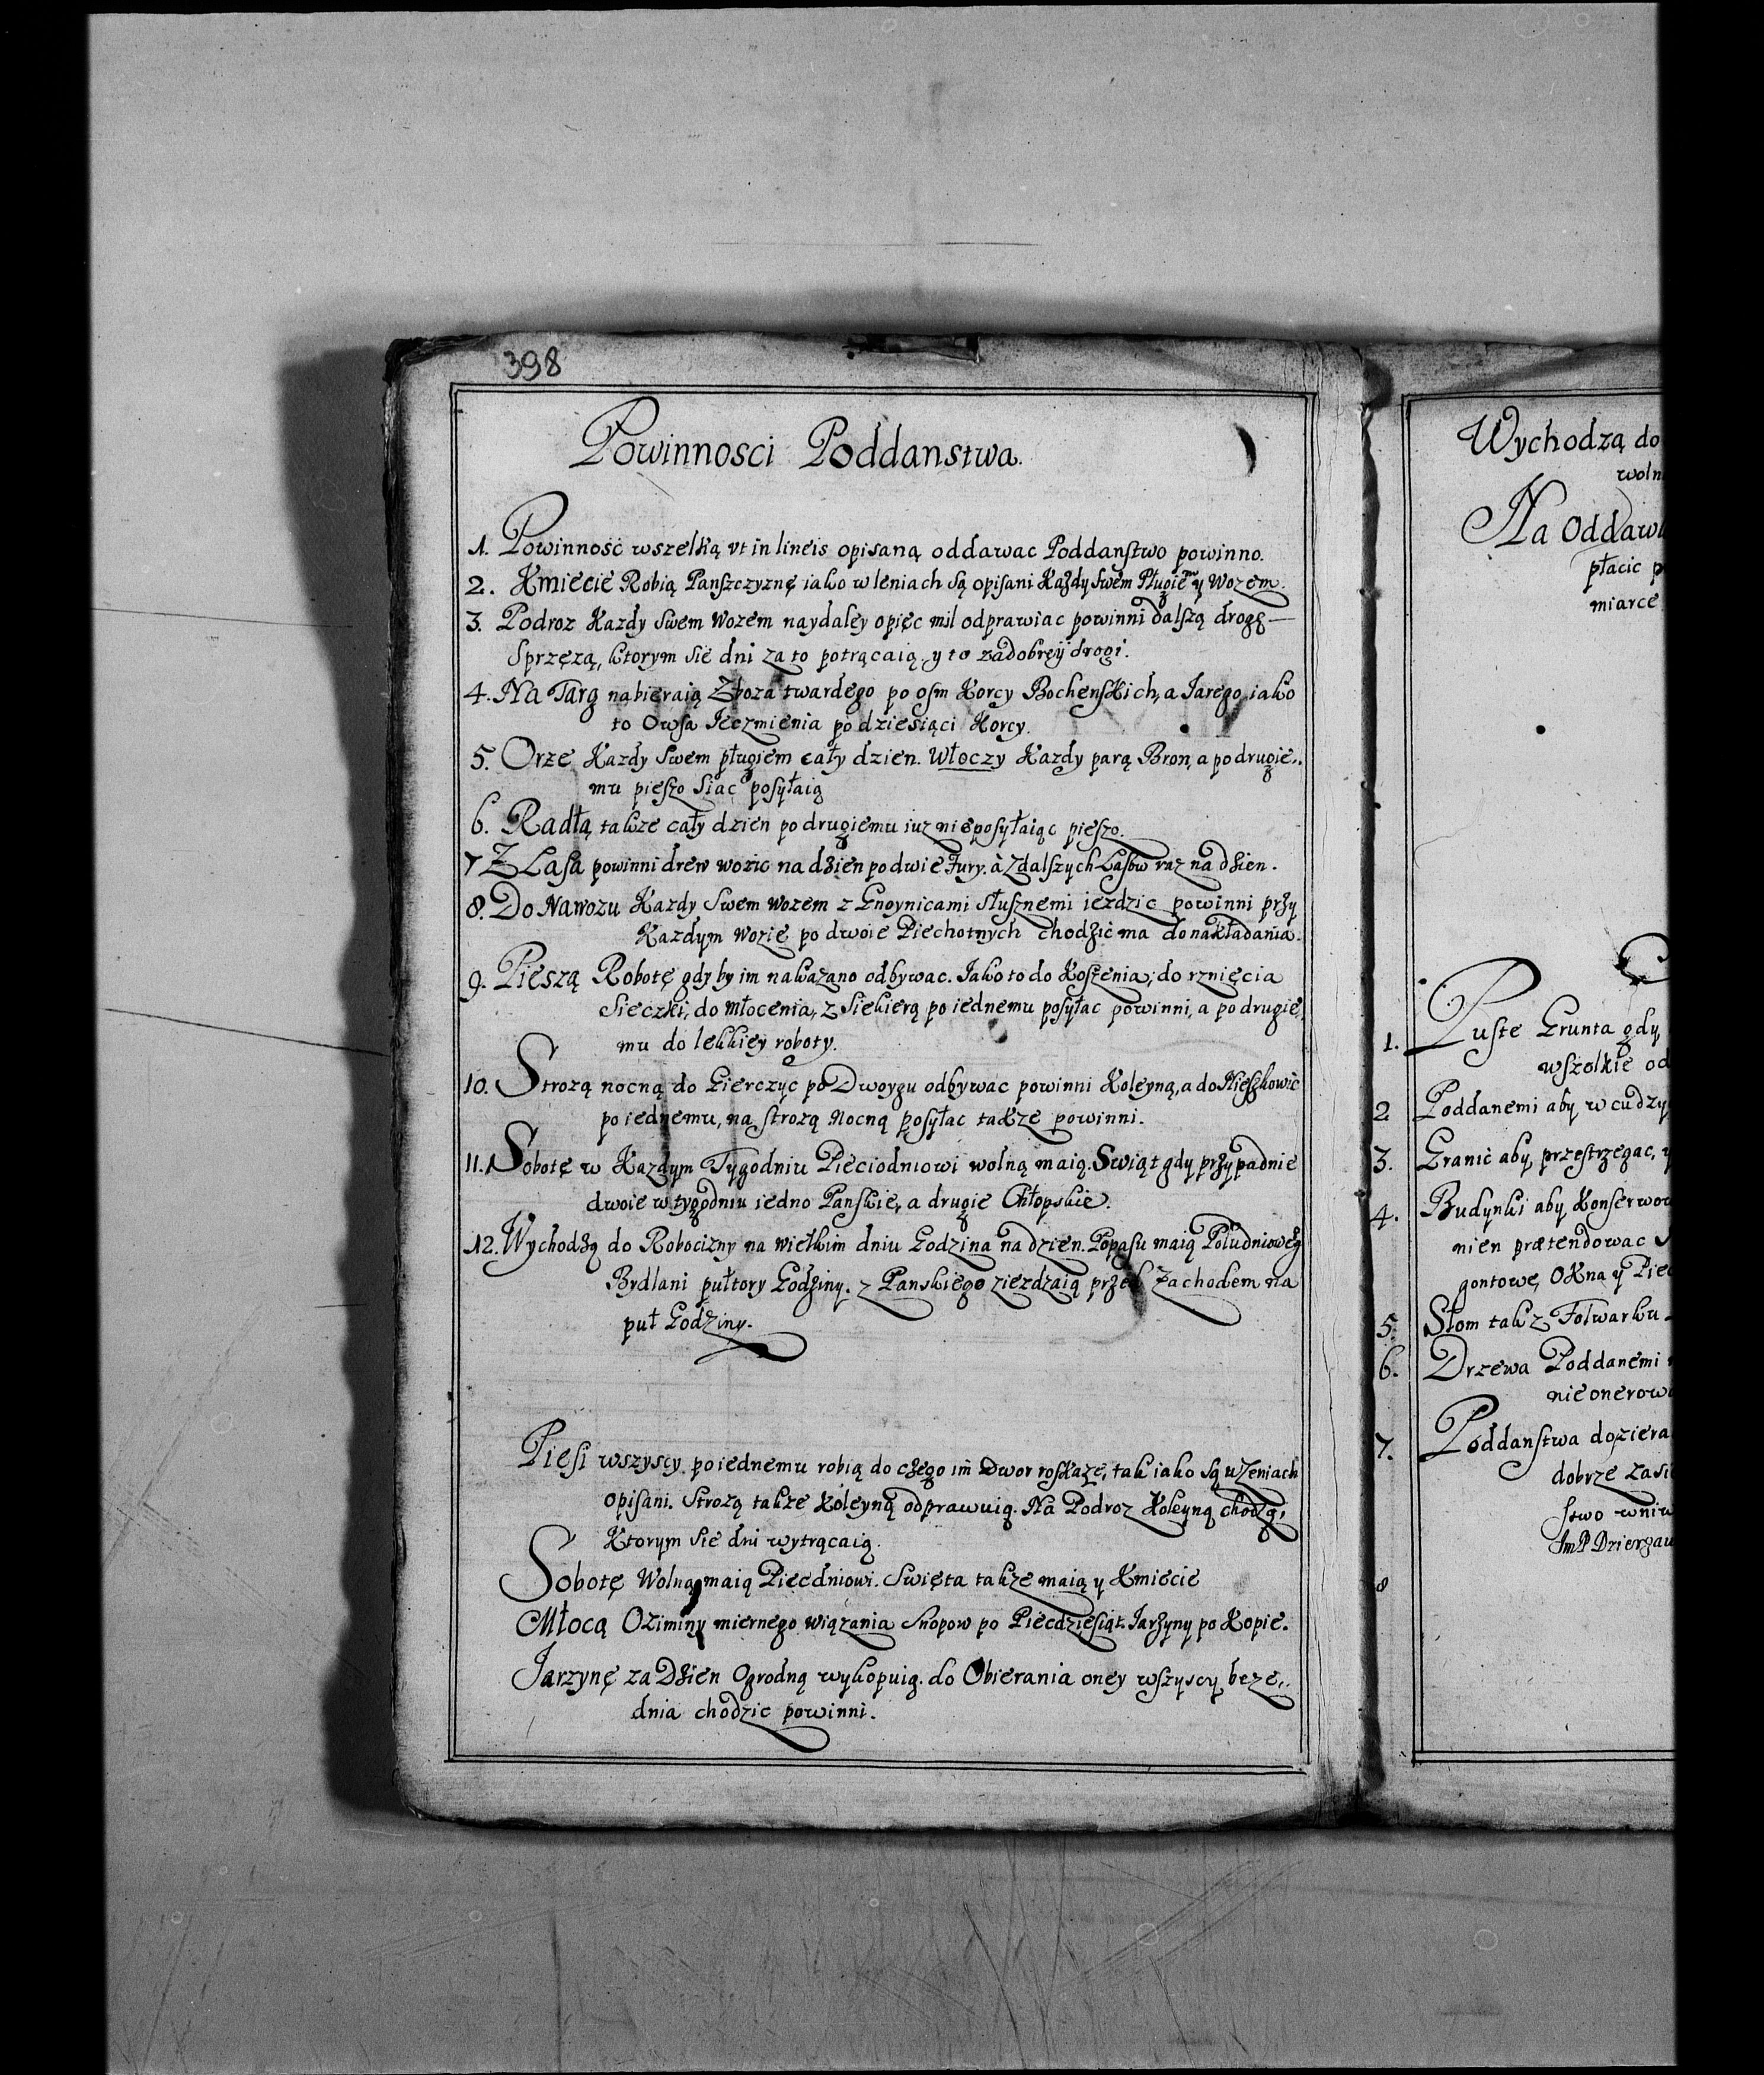 398
Powinnosci Poddanstwa.
1. Powinność wszelką vt in lineis opisaną oddawac Poddanstwo powinno.
2. Kmiecie Robią Panszczyznę iako w leniach są opisani Kazdy swem Pługiem y Wozem.
3. Podroz Kazdy swem Wozem naydaley o pięc mil odprawiac powinni dalszą drogę —
Sprzęzą, ktorym sie dni za to potrącaią y to za dobreÿ drogi.
4. Na Targ nabieraią Zboza twardego po osm Korcy Bochenskich, a Jarego iako
to Owsa Jeczmienia po dziesiąci Korcy.
5. Orze Kazdy swem pługiem cały dzien. Włoczy Kazdy parą Bron, a po drugie..
mu pieszo siac posyłaią
6. Radłą takze cały dzien po drugiemu iuz nieposyłaiąc pieszo.
7 Z Lasa powinni drew wozic na dzien po dwie Fury. à z dalszych Lasow raz na dzien.
8. Do Nawozu Kazdy swem Wozem z Gnoynicami słusznemi iezdzic powinni przy
Kazdym Wozie po dwoie Piechotnych chodzic ma do nakładania.
9. Pieszą Robotę gdy by im nakazano odbywac. Jako to do Koszenia, do rznięcia
Sieczki, do młocenia, z Siekierą po iednemu posyłac powinni, a po drugie,
mu do lekkiey roboty.
10. Strozą nocną do Gierczyc po Dwoygu odbywac powinni Koleyną, a do Nieszkowic
po iednemu, na strozą Nocną posyłac takze powinni.
11. Sobotę w Kazdym Tygodniu Pieciodniowi wolną maią. Swiąt gdy przypadnie
dwoie w tygodniu iedno Panskie, a drugie Chłopskie.
12. Wychodzą do Robocizny na wielkim dniu Godzina na dzien. Popasu maią Południoweg
Bydlani pułtory Godziny. z Panskiego ziezdzaią przed zachodem na
puł Godziny.
Piesi wszyscy po iednemu robią do czego im Dwor roskaze, tak iako są w leniach
opisani. Strozą takze Koleyną odprawuią. Na Podroz Koleyną chodzą,
Ktorym sie dni wytrącaią.
Sobotę Wolną maią Piecdniowi. Swięta takze maią y Kmiecie
Młocą Oziminy miernego wiązania Snopow po Piecdziesiąt. Jarzyny po Kopie.
Jarzynę za Dzien Ogrodną wykopuią. do Obierania oney wszyscy beze..
dnia chodzic powinni.
Wychodzą do
woln
Na Oddaw
płacic p
miarce
1. Puste Grunta gdy
wszolkie od
2 Poddanemi aby w cudzy
3. Granic aby przestrzegac, y
4. Budynki aby Konserwo
nien prætendowac
gontowe, Okna y Piec
5. Słom tak z Folwarku
6. Drzewa Poddanemi
nie onerow
7. Poddanstwa doziera
dobrze zasi
stwo wniw
ImP Dzierzaw
8